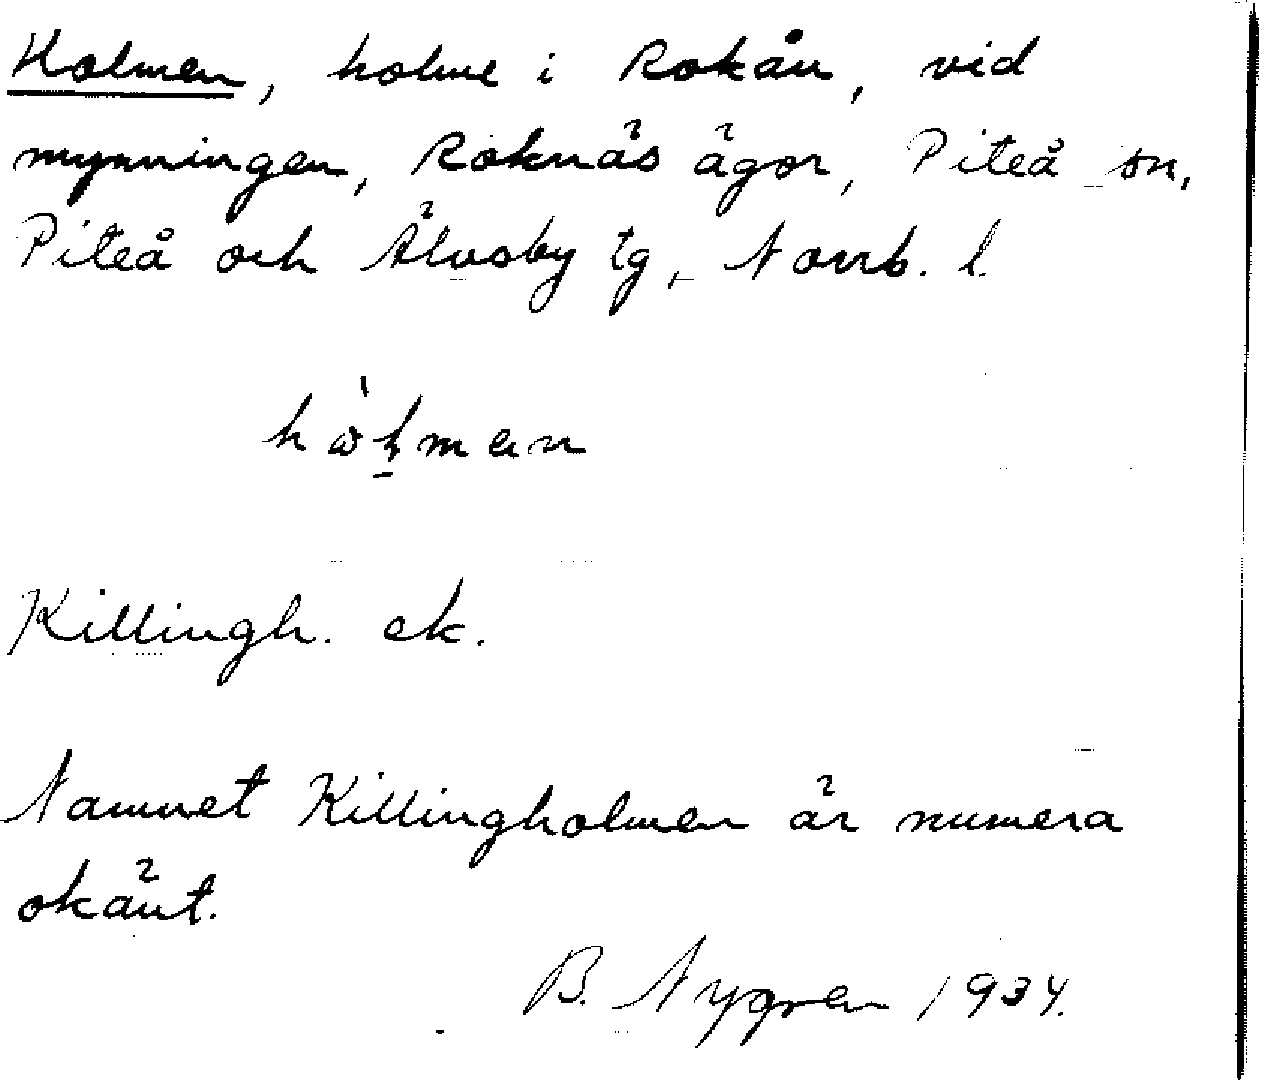 Holmen, holme i Rokån, vid
mynningen, Roknäs ägor, Piteå sn,
Piteå och Älvsby tg, Norrb. l.
Killingh. ek.
Namnet Killingholmen är numera
okänt.
B. Nygren 1934.